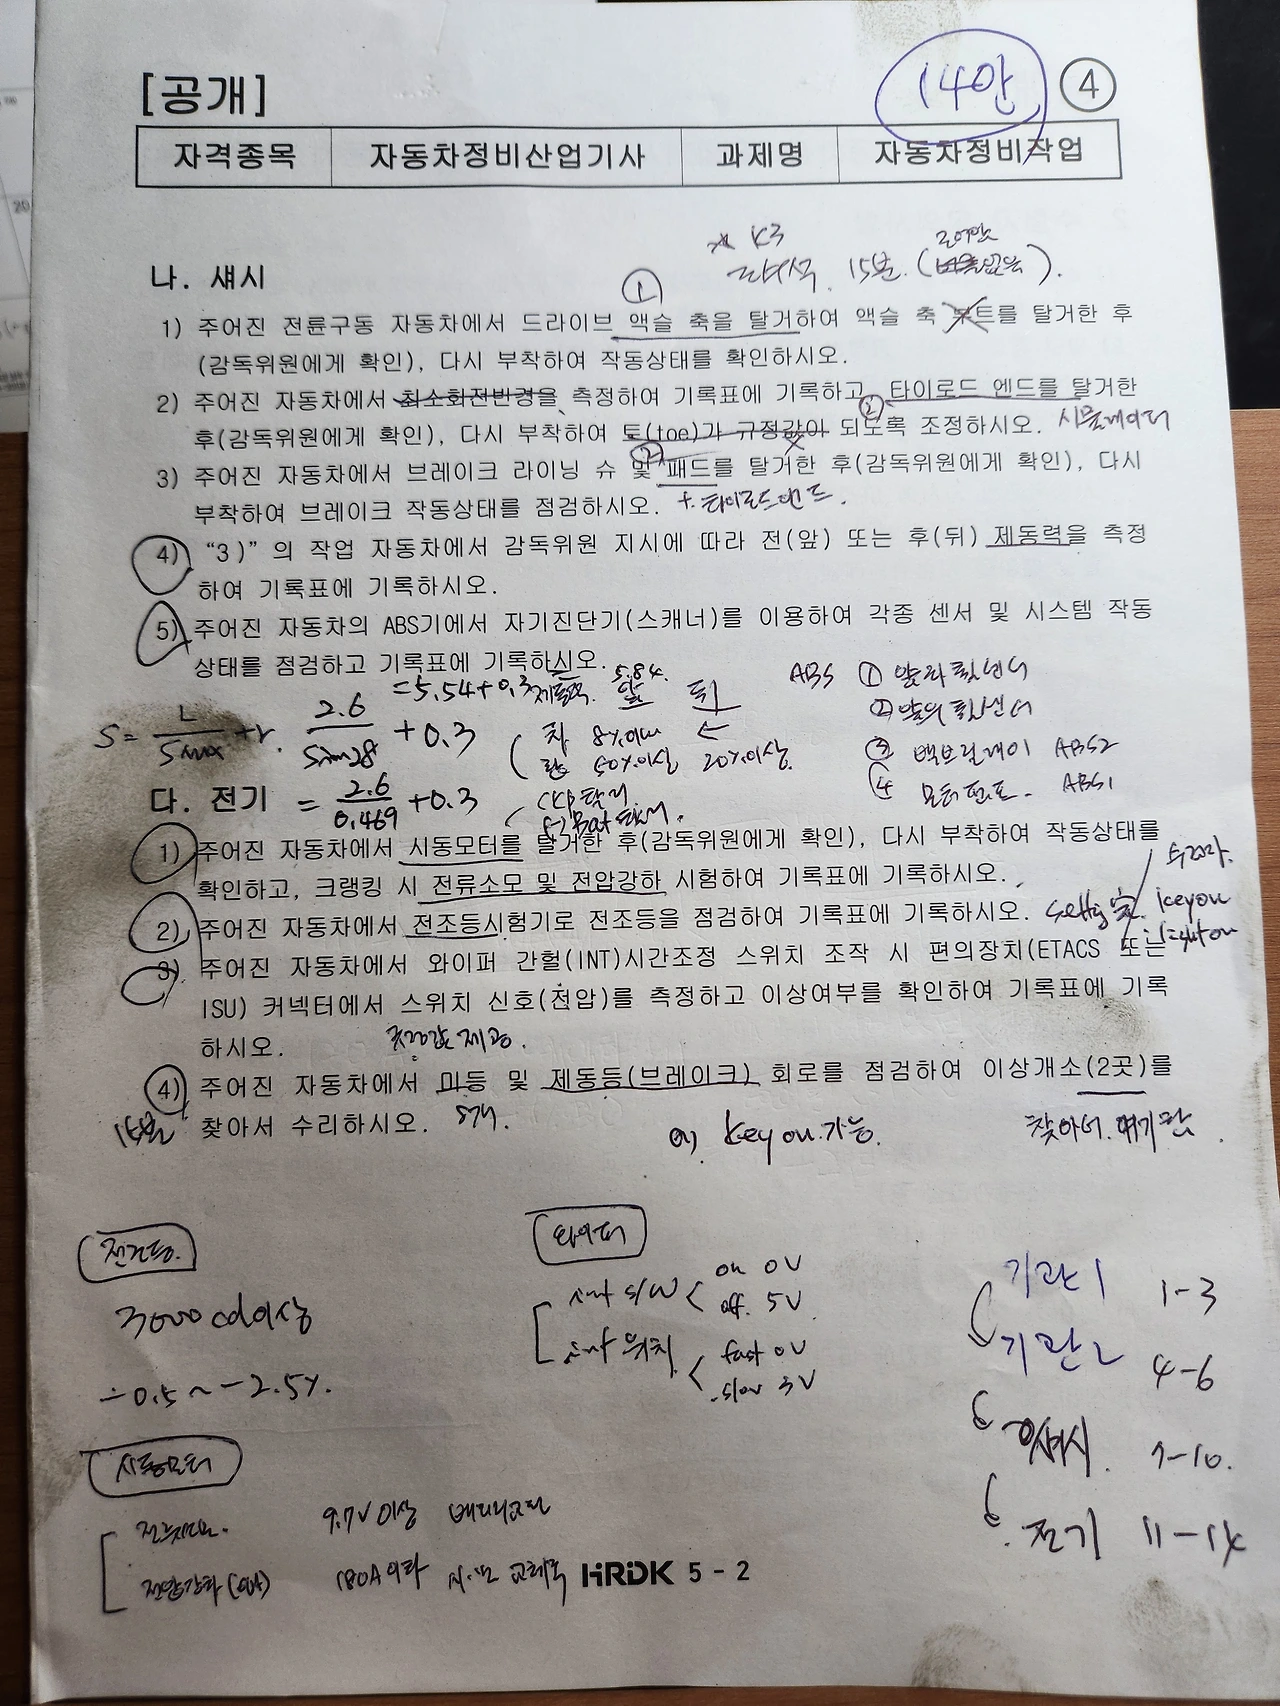 [공개]
14안
④
자격종목 자동차정비산업기사 과제명 자동차정비작업
K3
나. 섀시
15분.
①
1) 주어진 전륜구동 자동차에서 드라이브 액슬 축을 탈거하여 액슬 축 부트를 탈거한 후
(감독위원에게 확인), 다시 부착하여 작동상태를 확인하시오.
2) 주어진 자동차에서 최소회전반경을 측정하여 기록표에 기록하고, 타이로드 엔드를 탈거한
②
후(감독위원에게 확인), 다시 부착하여 토(toe)가 규정값이 되도록 조정하시오. 시뮬레이터
3) 주어진 자동차에서 브레이크 라이닝 슈 및 패드를 탈거한 후(감독위원에게 확인), 다시
부착하여 브레이크 작동상태를 점검하시오. + 타이로드엔드.
4) “3)”의 작업 자동차에서 감독위원 지시에 따라 전(앞) 또는 후(뒤) 제동력을 측정
하여 기록표에 기록하시오.
5) 주어진 자동차의 ABS기에서 자기진단기(스캐너)를 이용하여 각종 센서 및 시스템 작동
상태를 점검하고 기록표에 기록하시오.
=5.54+0.3 제동력 5.84. 앞 뒤
ABS ① 앞좌 휠센서
② 앞우 휠센서
2.6
Sin28 +0.3
차 8%이내 ←
합 50%이상 20%이상.
③ 백브릴레이 ABS2
④ 모터펌프. ABS1
다. 전기 = 2.6
0.469 +0.3
CKP탈거
1) 주어진 자동차에서 시동모터를 탈거한 후(감독위원에게 확인), 다시 부착하여 작동상태를
확인하고, 크랭킹 시 전류소모 및 전압강하 시험하여 기록표에 기록하시오.
2) 주어진 자동차에서 전조등시험기로 전조등을 점검하여 기록표에 기록하시오.
keyon
light on
3) 주어진 자동차에서 와이퍼 간헐(INT)시간조정 스위치 조작 시 편의장치(ETACS 또는
ISU) 커넥터에서 스위치 신호(전압)를 측정하고 이상여부를 확인하여 기록표에 기록
하시오. 규정값 제공.
4) 주어진 자동차에서 미등 및 제동등(브레이크) 회로를 점검하여 이상개소(2곳)를
찾아서 수리하시오.
key on.가능.
전조등.
3000cd이상
-0.5~-2.5%.
와이퍼
S/W on 0V
off. 5V
위치 fast 0V
slow 3V
기관1 1-3
기관2 4-6
섀시 7-10.
전기 11-14
시동모터
9.7V이상
전압강하
180A이하
HRDK 5 - 2